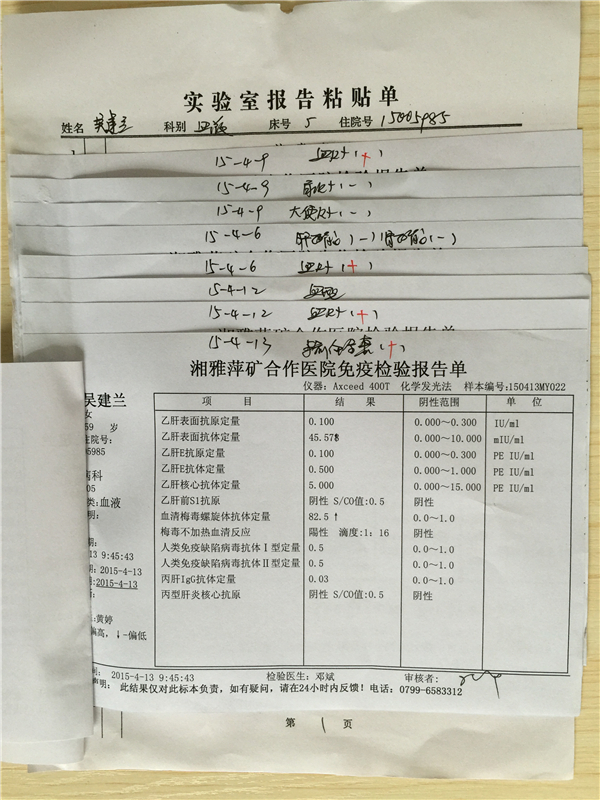 实验室报告粘贴单
姓名 吴建兰 科别 床号 5 住院号 15005985
15-4-9 血R+(+)
15-4-9 尿R+(-)
15-4-9 大便R+(-)
15-4-6 肝 (-) 肾 (-)
15-4-6 血R+(+)
15-4-12 血型
15-4-12 血R+(+)
15-4-13 (+)
湘雅萍矿合作医院免疫检验报告单
仪器: Axceed 400T 化学发光法 样本编号:150413MY022
吴建兰
女
59 岁
住院号:
05985
病科
05
类:血液
明:
期:
13 9:45:43
期:2015-4-13
:2015-4-13
:黄婷
偏高,↓-偏低
项 目 结 果 阴性范围 单 位
乙肝表面抗原定量 0.100 0.000~0.300 IU/ml
乙肝表面抗体定量 45.578 0.000~10.000 mIU/ml
乙肝E抗原定量 0.100 0.000~0.300 PE IU/ml
乙肝E抗体定量 0.500 0.000~1.000 PE IU/ml
乙肝核心抗体定量 5.000 0.000~15.000 PE IU/ml
乙肝前S1抗原 阴性 S/CO值:0.5 阴性
血清梅毒螺旋体抗体定量 82.5 ↑ 0.0~1.0
梅毒不加热血清反应 陽性 滴度:1: 16 阴性
人类免疫缺陷病毒抗体Ⅰ型定量 0.5 0.0~1.0
人类免疫缺陷病毒抗体Ⅱ型定量 0.5 0.0~1.0
丙肝IgG抗体定量 0.03 0.0~1.0
丙型肝炎核心抗原 阴性 S/CO值:0.5 阴性
间: 2015-4-13 9:45:43 检验医生:邓斌 审核者:
声明: 此结果仅对此标本负责,如有疑问,请在24小时内反馈!电话:0799-6583312
第 1 页